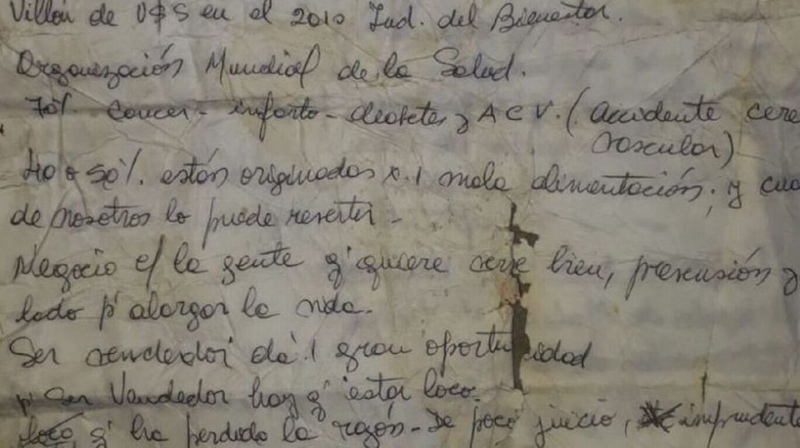 Villón de U$S en el 2010 Ind. del Bienestar.
Organización Mundial de la Salud.
70% Cancer - infarto - diabetes y ACV. (accidente cere
vascular)
40 o 50%. están originados x 1 mala alimentación; y cua
de nosotros lo puede revertir -
Negocio c/ la gente q' quiere bien,
lado p' alargar la vida.
Ser vendedor dá 1 gran oportunidad
p' ser Vendedor hay q' estar loco.
loco, q' ha perdido la razón - de poco juicio, imprudente